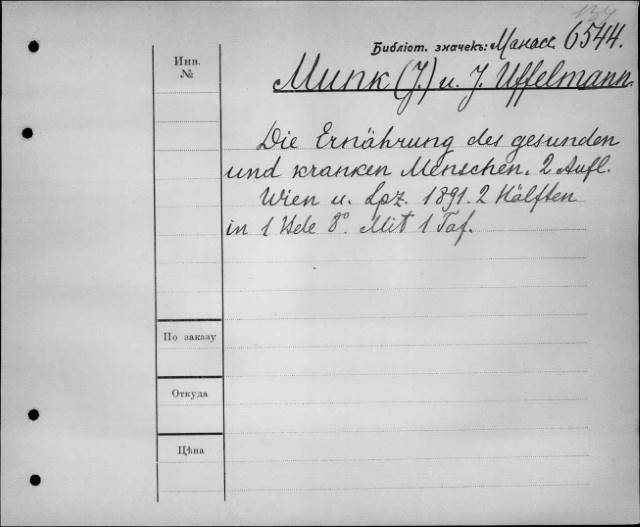 137
Библіот. значекъ: Манасс. 6544.
Инв.
№
Munk (J.) u. J. Uffelmann.
Die Ernährung des gesunden
und kranken Menschen. 2 Aufl.
Wien u. Lpz. 1891. 2 Hälften
in 1 Bde 8º. Mit 1 Taf.
По заказу
Откуда
Цѣна